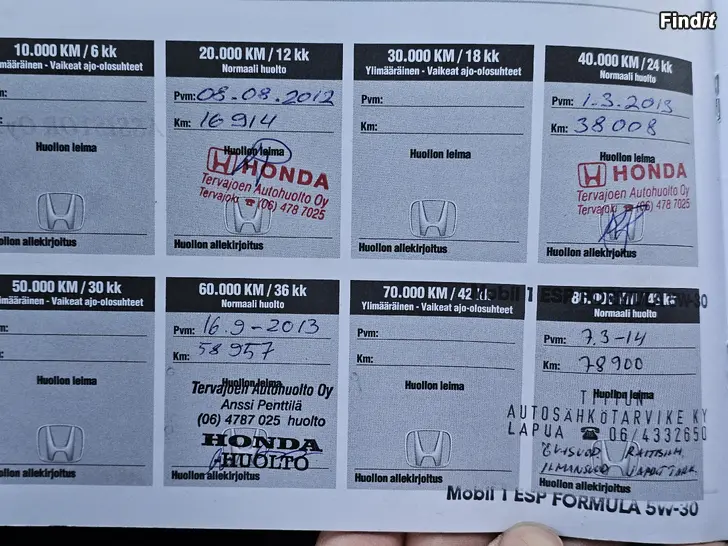 Findit
10.000 KM / 6 kk
määräinen - Vaikeat ajo-olosuhteet
m:
Huollon leima
ollon allekirjoitus
20.000 KM / 12 kk
Normaali huolto
Pvm: 08-08.2012
Km: 16914
Huollon leima
HONDA
Tervajoen Autohuolto Oy
Tervajoki ☎ (06) 478 7025
Huollon allekirjoitus
30.000 KM / 18 kk
Ylimääräinen - Vaikeat ajo-olosuhteet
Pvm:
Km:
Huollon leima
Huollon allekirjoitus
40.000 KM / 24 kk
Normaali huolto
Pvm: 1-3.2013
Km: 38008
Huollon leima
HONDA
Tervajoen Autohuolto Oy
Tervajoki ☎ (06) 478 7025
Huollon allekirjoitus
50.000 KM / 30 kk
imääräinen - Vaikeat ajo-olosuhteet
m:
Huollon leima
ollon allekirjoitus
60.000 KM / 36 kk
Normaali huolto
Pvm: 16.9-2013
Km: 58957
Huollon leima
Tervajoen Autohuolto Oy
Anssi Penttilä
(06) 4787 025 huolto
HONDA
HUOLTO
Huollon allekirjoitus
70.000 KM / 42 kk
Ylimääräinen - Vaikeat ajo-olosuhteet
Pvm:
Km:
Huollon leima
Huollon allekirjoitus
Mobil 1 ESP FORMULA 5W-30
80.000 KM / 48 kk
Normaali huolto
Pvm: 7.3-14
Km: 78900
Huollon leima
AUTOSÄHKÖTARVIKE KY
LAPUA ☎ 06/4332650
Huollon allekirjoitus
Mobil 1 ESP FORMULA 5W-30